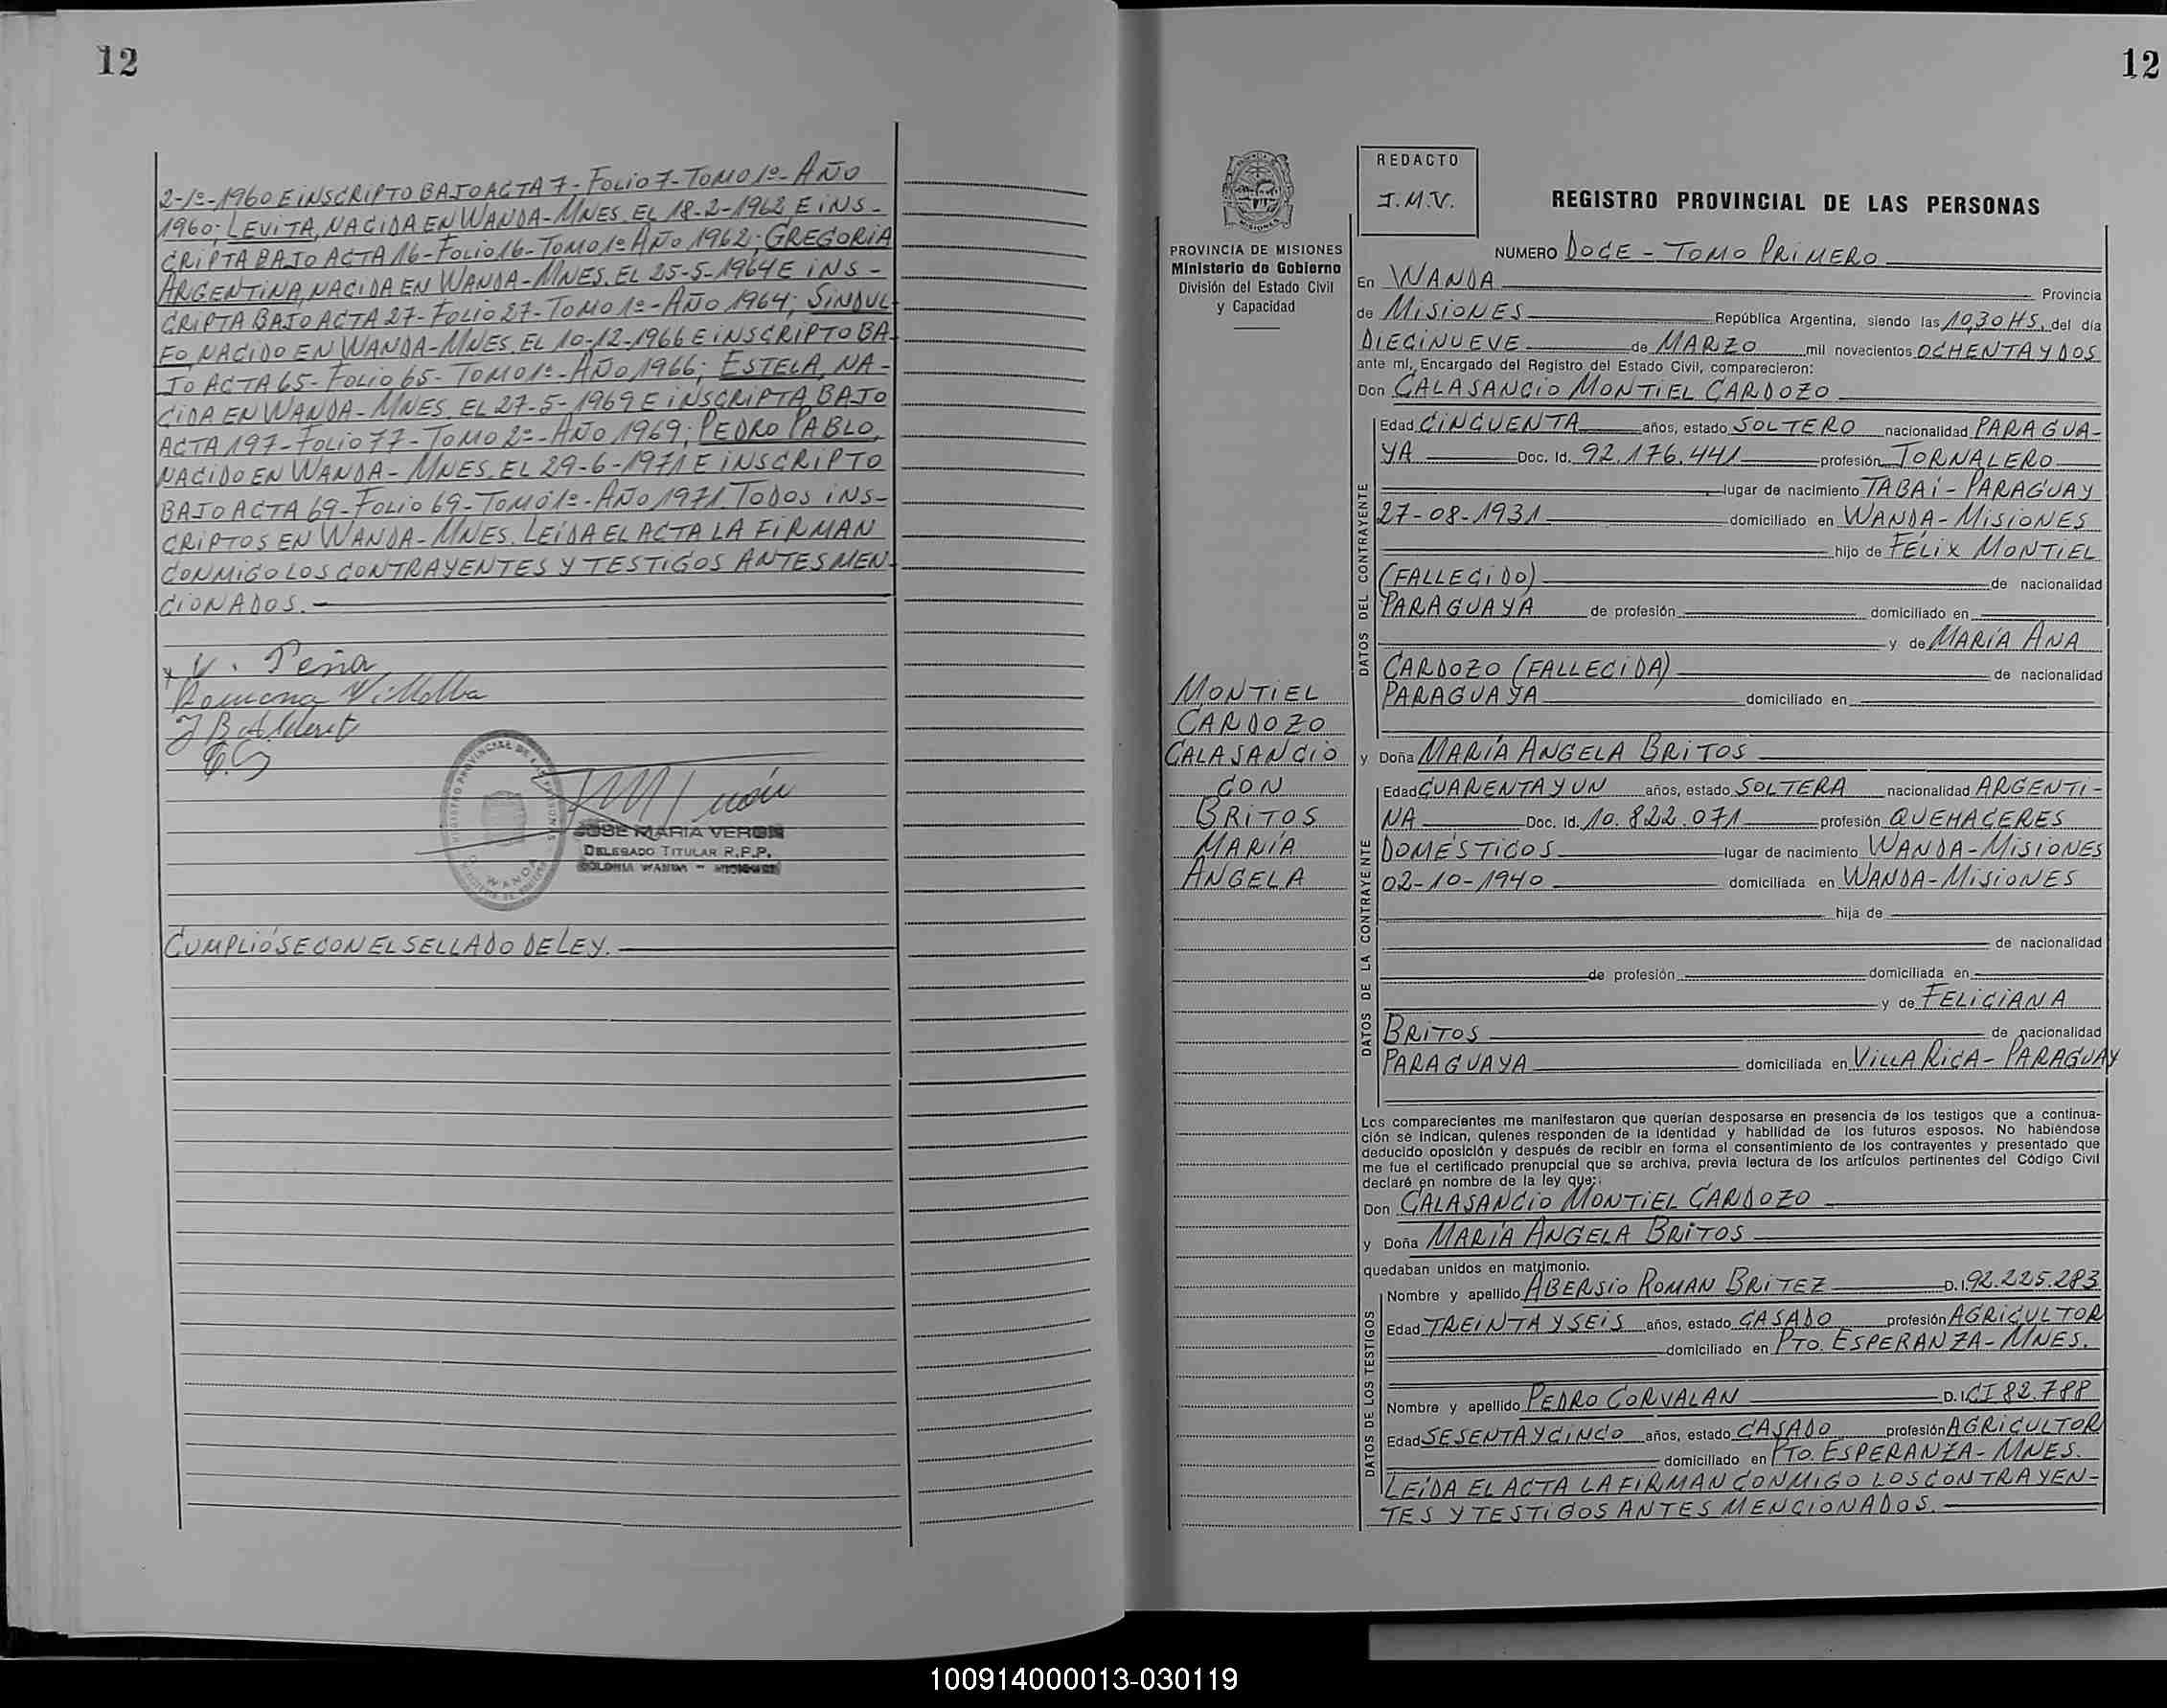 12
2-1º-1960 E iNSCRiPTO BAJO ACTA 7- FOLiO 7- TOMO 1º- AÑO
1960; LEViTA, NACiDA EN WANDA-MNES. EL 18-2-1962 E iNS-
CRiPTA BAJO ACTA 16- FOLiO 16- TOMO 1º AÑO 1962; GREGORiA
ARGENTiNA, NACiDA EN WANDA-MNES. EL 25-5-1964 E iNS-
CRiPTA BAJO ACTA 27- FOLiO 27- TOMO 1º- AÑO 1964; SiNDUL-
FO, NACiDO EN WANDA-MNES. EL 10-12-1966 E iNSCRiPTO BA-
JO ACTA 65- FOLiO 65- TOMO 1º- AÑO 1966; ESTELA, NA-
CiDA EN WANDA-MNES. EL 27-5-1969 E iNSCRiPTA BAJO
ACTA 197- FOLiO 77- TOMO 2º- AÑO 1969; PEDRO PABLO,
NACiDO EN WANDA- MNES. EL 29-6-1971 E iNSCRiPTO
BAJO ACTA 69- FOLiO 69- TOMO 1º- AÑO 1971. TODOS iNS-
CRiPTOS EN WANDA-MNES. LEÍDA EL ACTA LA FiRMAN
CONMiGO LOS CONTRAYENTES Y TESTiGOS ANTES MEN-
CiONADOS.-
V. Peña
Romana Villalba
REGISTRO PROVINCIAL DE LAS PERSONAS
WANDA
JOSE MARIA VERON
DELEGADO TITULAR R.P.P.
COLONIA WANDA - MISIONES
CUMPLiÓSE CON EL SELLADO DE LEY.
12
PROVINCIA DE MISIONES
Ministerio de Gobierno
División del Estado Civil
y Capacidad
MONTiEL
CARDOZO
CALASANCiO
CON
BRiTOS
MARÍA
ANGELA
REDACTO
J.M.V.
REGISTRO PROVINCIAL DE LAS PERSONAS
NUMERO DOCE - TOMO PRiMERO
En WANDA Provincia
de MiSiONES República Argentina, siendo las 10,30 HS. del día
DiECiNUEVE de MARZO mil novecientos OCHENTA Y DOS
ante mí, Encargado del Registro del Estado Civil, comparecieron:
Don CALASANCiO MONTiEL CARDOZO
DATOS DEL CONTRAYENTE
Edad CiNCUENTA años, estado SOLTERO nacionalidad PARAGUA-
YA Doc. Id. 92.176.441 profesión JORNALERO
lugar de nacimiento TABAÍ - PARAGUAY
27-08-1931 domiciliado en WANDA-MiSiONES
hijo de FÉLiX MONTiEL
(FALLECiDO) de nacionalidad
PARAGUAYA de profesión domiciliado en
y de MARÍA ANA
CARDOZO (FALLECiDA) de nacionalidad
PARAGUAYA domiciliado en
y Doña MARÍA ANGELA BRiTOS
DATOS DE LA CONTRAYENTE
Edad CUARENTA Y UN años, estado SOLTERA nacionalidad ARGENTi-
NA Doc. Id. 10.822.071 profesión QUEHACERES
DOMÉSTiCOS lugar de nacimiento WANDA-MiSiONES
02-10-1940 domiciliada en WANDA-MiSiONES
hija de
de nacionalidad
de profesión domiciliada en
y de FELiCiANA
BRiTOS de nacionalidad
PARAGUAYA domiciliada en ViLLA RiCA - PARAGUAY
Los comparecientes me manifestaron que querían desposarse en presencia de los testigos que a continua-
ción se indican, quienes responden de la identidad y habilidad de los futuros esposos. No habiéndose
deducido oposición y después de recibir en forma el consentimiento de los contrayentes y presentado que
me fue el certificado prenupcial que se archiva, previa lectura de los artículos pertinentes del Código Civil
declaré en nombre de la ley que:
Don CALASANCiO MONTiEL CARDOZO
y Doña MARÍA ANGELA BRiTOS
quedaban unidos en matrimonio.
DATOS DE LOS TESTIGOS
Nombre y apellido ABERSiO ROMAN BRiTEZ D.I. 92.225.283
Edad TREiNTA Y SEiS años, estado CASADO profesión AGRiCULTOR
domiciliado en PTO. ESPERANZA-MNES.
Nombre y apellido PEDRO CORVALAN D.I. CI 82.788
Edad SESENTA Y CiNCO años, estado CASADO profesión AGRiCULTOR
domiciliado en PTO. ESPERANZA-MNES.
LEÍDA EL ACTA LA FiRMAN CONMiGO LOS CONTRAYEN-
TES Y TESTiGOS ANTES MENCiONADOS.
100914000013-030119